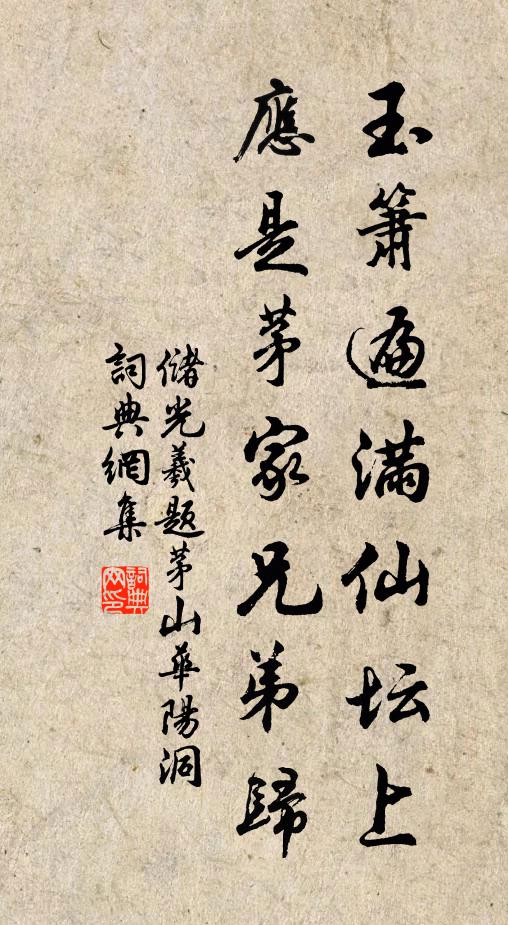 玉簫遍满仙坛上
應是茅家兄弟歸
儲光羲題茅山華陽洞
詞典網集
詞典网印